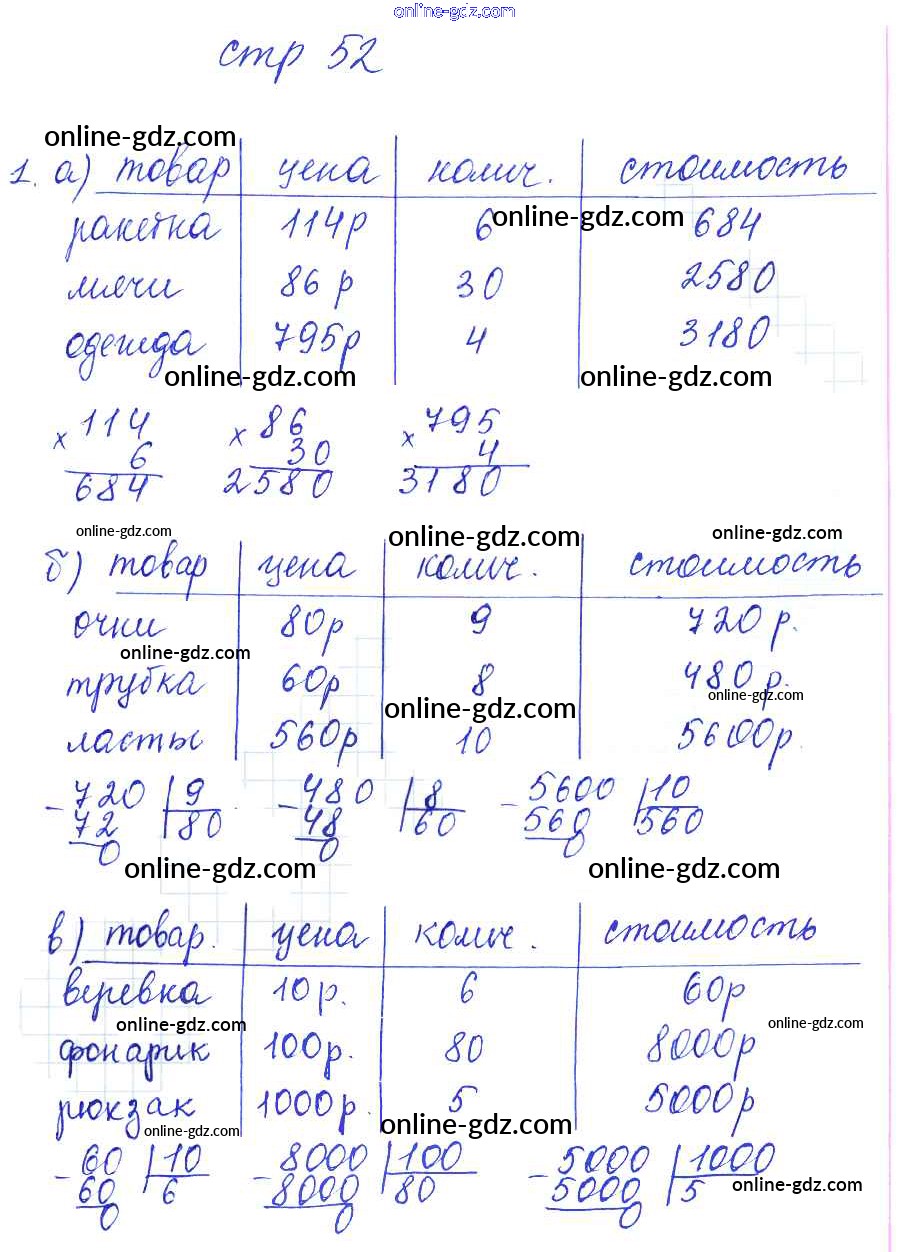 online-gdz.com
стр 52
online-gdz.com
1. а) товар цена колич. стоимость
ракетка 114р 6 online-gdz.com 684
мячи 86 р 30 2580
одежда 795р 4 3180
online-gdz.com online-gdz.com
× 114 × 86 × 795
6 30 4
684 2580 3180
online-gdz.com online-gdz.com online-gdz.com
б) товар цена колич. стоимость
очки 80р 9 720 р.
online-gdz.com
трубка 60р 8 480 р.
online-gdz.com online-gdz.com
ласты 560р 10 5600р.
- 720 9 - 480 8 - 5600 10
72 80 48 60 560 560
0 0 0
online-gdz.com online-gdz.com
в) товар. цена колич. стоимость
веревка 10р. 6 60р
online-gdz.com online-gdz.com
фонарик 100р. 80 8000р
рюкзак 1000р. 5 5000р
online-gdz.com online-gdz.com
- 60 10 - 8000 100 - 5000 1000
60 6 8000 80 5000 5 online-gdz.com
0 0 0